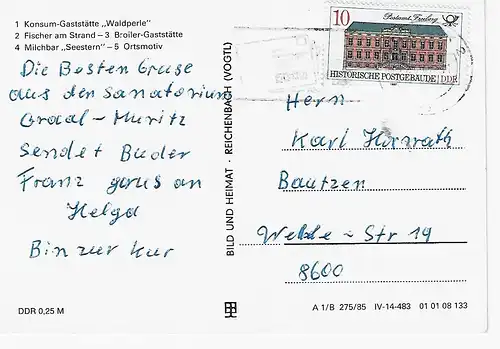 1 Konsum-Gaststätte „Waldperle"
2 Fischer am Strand – 3 Broiler-Gaststätte
4 Milchbar „Seestern" – 5 Ortsmotiv
Die Besten Gruse
aus den Sanatorium
Graal – Muritz
sendet Buder
Franz grus an
Helga
Bin zur kur
DDR 0,25 M
BILD UND HEIMAT · REICHENBACH (VOGTL)
10
Postamt, Freiberg
HISTORISCHE POSTGEBÄUDE DDR
Hern
Karl Horvath
Bautzen
Str 19
8600
A 1/B 275/85 IV-14-483 01 01 08 133